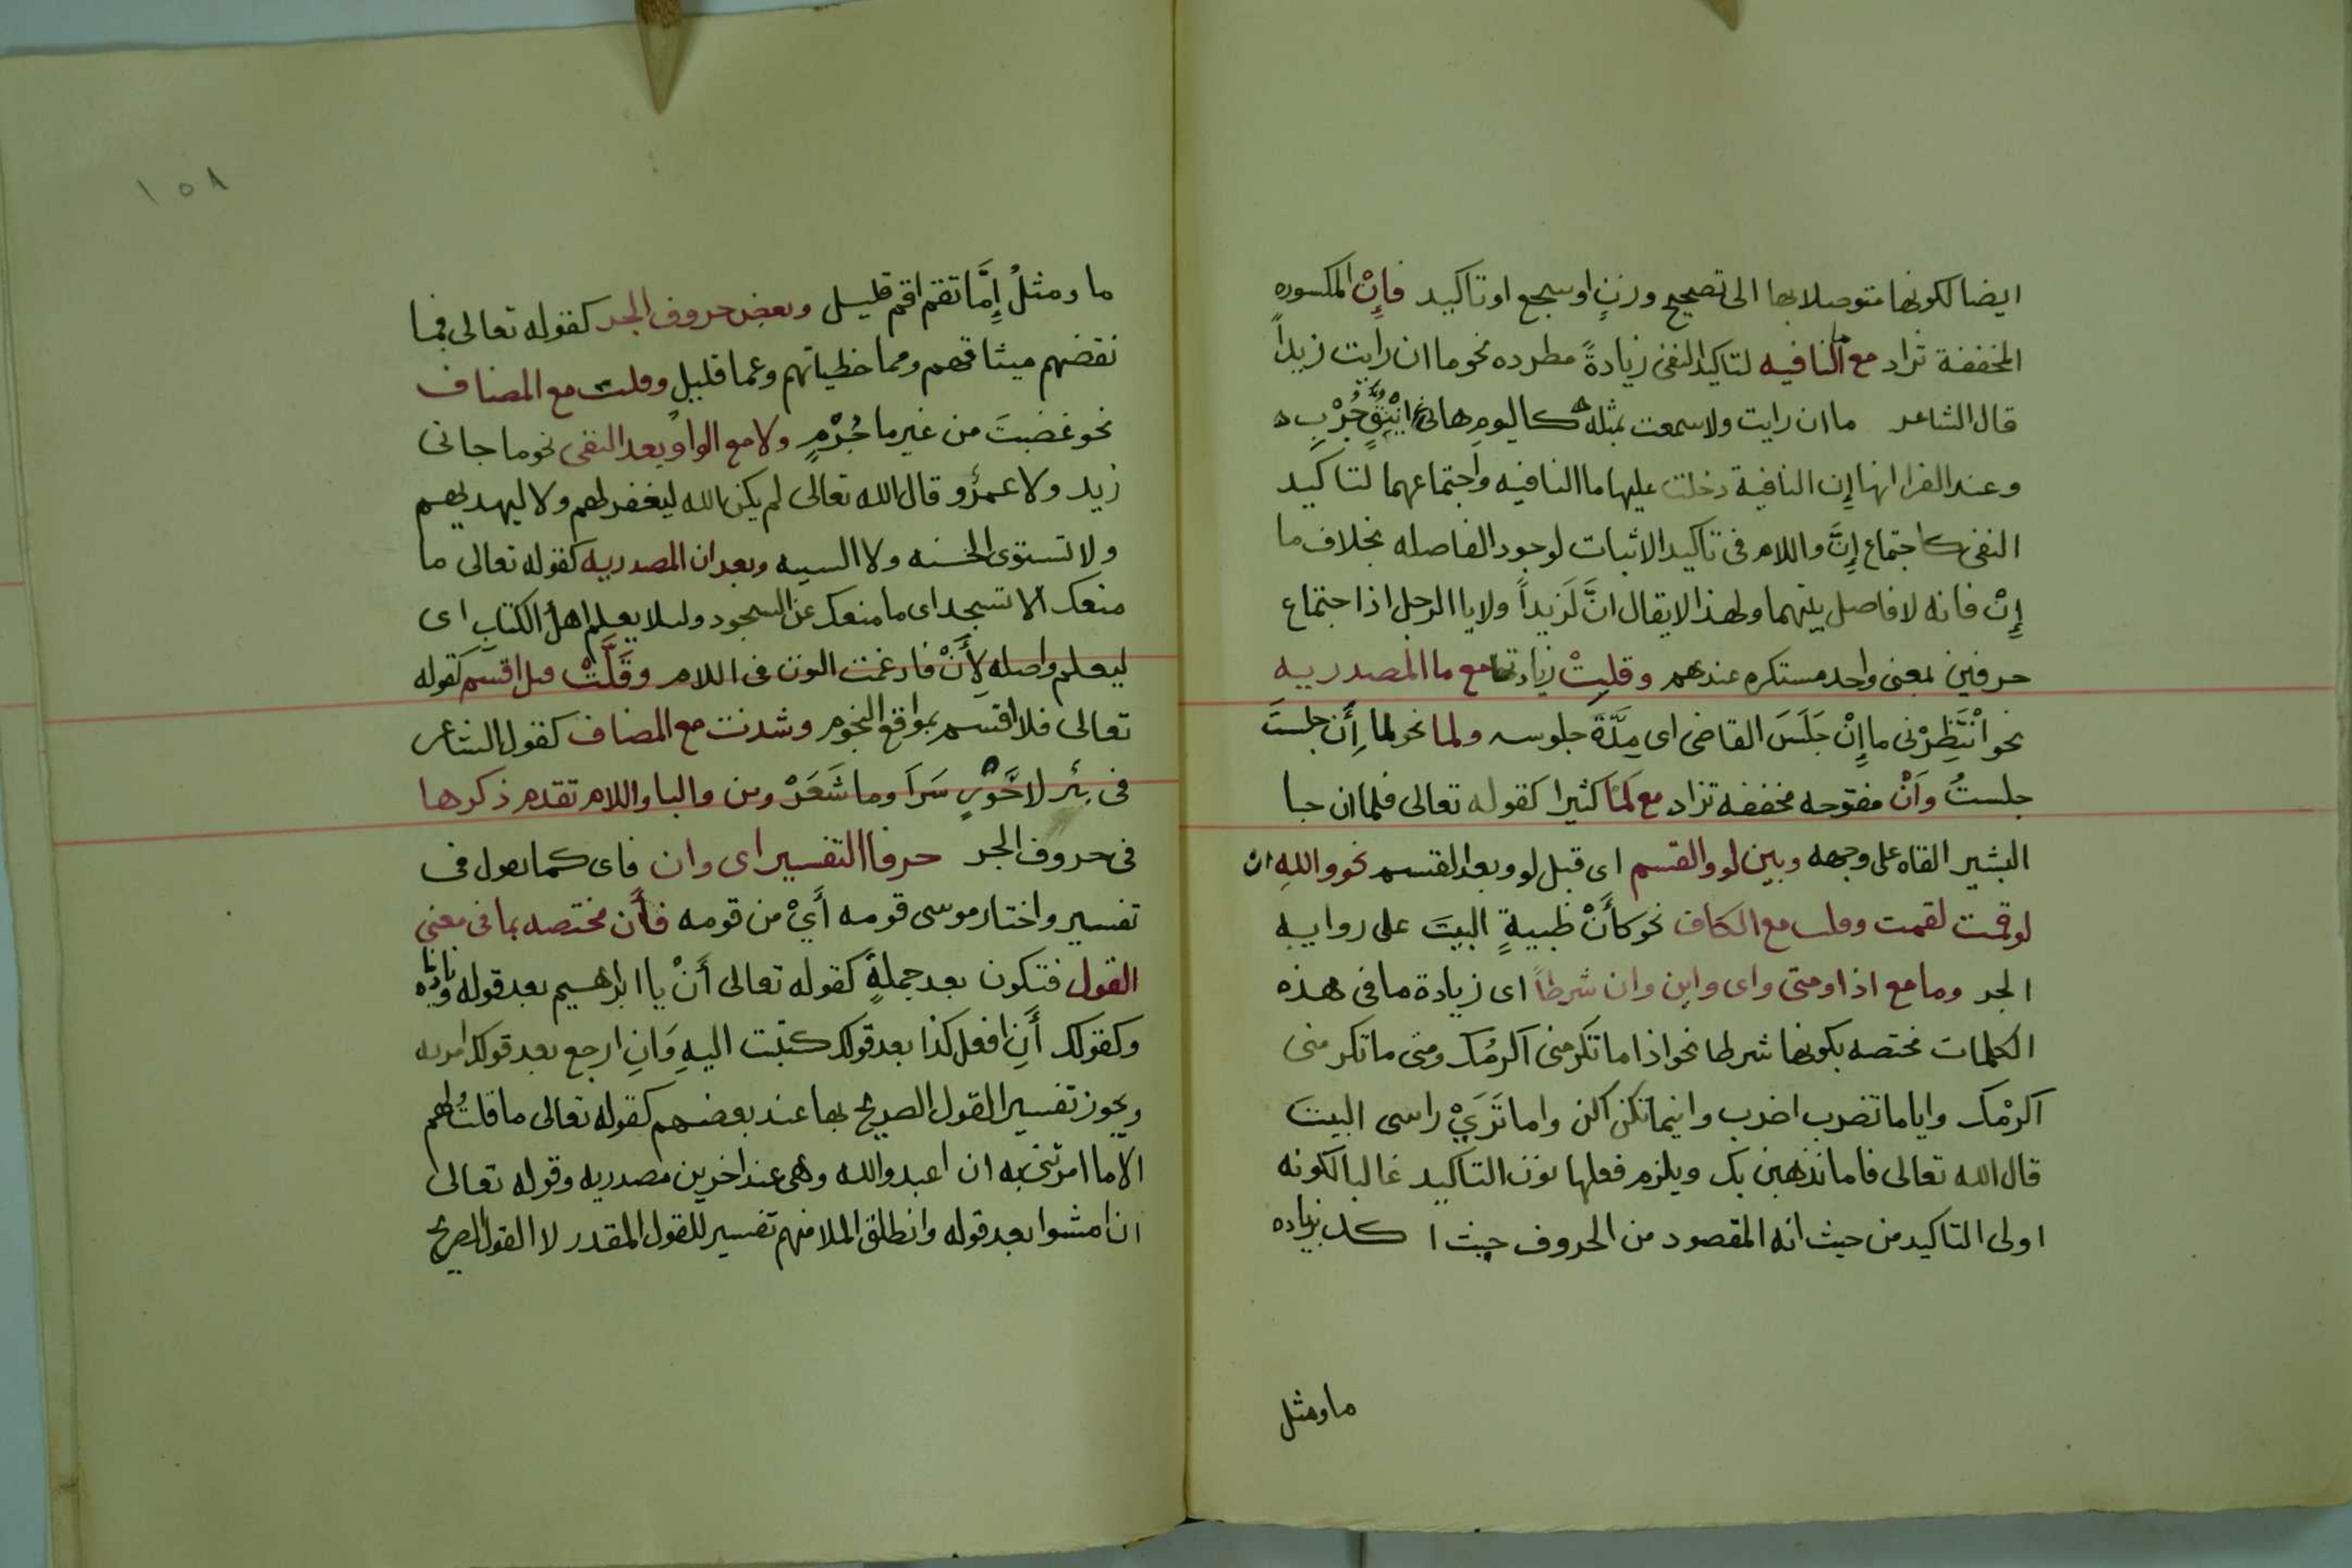 ايضا لكونها متوصلا بها الى تصحيح وزنٍ او سجع او تاكيد فإنْ المكسوره
المخففة تزاد مع ما النافيه لتاكيد النفى زيادةً مطرده نحو ما ان رايت زيداً
قال الشاعر ما ان رايت ولا سمعت بمثله كاليومِ هانئ اينُقٍ جُرْبِ
وعند الفرا انها إن النافية دخلت عليها ما النافيه واجتماعهما لتاكيد
النفى كاجتماع إنَّ واللام فى تاكيد الاثبات لوجود الفاصله بخلاف ما
إنْ فانه لا فاصل بينهما ولهذا لا يقال انَّ لَزيداً ولا يا الرجل اذا اجتماع
حرفين لمعنى واحد مستكره عندهم وقلتْ زيادتها مع ما المصدريه
نحو انْتَظِرْنى ما إنْ جَلَسَ القاضى اى مدَّةَ جلوسه ولما نحو لما إَن جلستَ
جلستُ وَاَنْ مفتوحه مخففه تزاد مع لَمّا كثيرا كقوله تعالى فلما ان جا
البشير القاه على وجهه وبين لو والقسم اى قبل لو وبعد القسم نحو واللهِ ان
لو قمت لقمت وقلت مع الكاف نحو كأَنْ ظبيةٍ البيتَ على روايه
الجر وما مع اذا ومتى واى واين وان شرطاً اى زيادة ما فى هذه
الكلمات مختصه بكونها شرطا نحو اذا ما تكرمنى اكرمُك ومتى ما تكرمنى
اكرمْك واياما تضرب اضرب واينما تكن اكن واما تَرَيْ راسى البيت
قال الله تعالى فاما نذهبن بك ويلزم فعلها نون التاكيد غالبا لكونه
اولى التاكيد من حيث انه المقصود من الحروف حيث ا كد بزياده
ما ومثل
١٥٨
ما ومثلُ إِمَّا تقم اقم قليل وبعض حروف الجر كقوله تعالى فبما
نقضهم ميثاقهم ومما خطياتهم وعما قليلٍ وقلت مع المضاف
نحو غضبتَ من غير ما جُرْمٍ ولا مع الواو بعد النفى نحو ما جانى
زيد ولا عمرٌو قال الله تعالى لم يكن الله ليغفر لهم ولا ليهديهم
ولا تستوى الحسنه ولا السيه وبعد ان المصدريه كقوله تعالى ما
منعك الا تسجد اى ما منعك عن السجود ولئلا يعلم اهلُ الكتابِ اى
ليعلم واصله لِأَنْ فادغمت النون فى اللام وقَلَّتْ قبل اقسم كقوله
تعالى فلا اقسم بمواقع النجوم وشذت مع المضاف كقول الشاعر
فى بئر لا حُوْرٍ سَرَا وما شَعَرْ ومن والبا واللام تقدم ذكرها
فى حروف الجر حرفا التفسير اى وان فاى كما تقول فى
تفسير واختار موسى قومه أَيْ من قومه فأَن مختصه بما فى معنى
القول فتكون بعد جملةٍ كقوله تعالى أَنْ يا ابراهيم بعد قوله وناديناه
وكقولك أَنِ افعل كذا بعد قولك كتبت اليهِ وَانِ ارجع بعد قولك امرته
ويجوز تفسير القول الصريح بها عند بعضهم كقوله تعالى ما قلتُ لهم
الا ما امرتنى به ان اعبدوا الله وهى عند اخرين مصدريه وقوله تعالى
ان امشوا بعد قوله وانطلق الملا منهم تفسير للقول المقدر لا القول الصريح